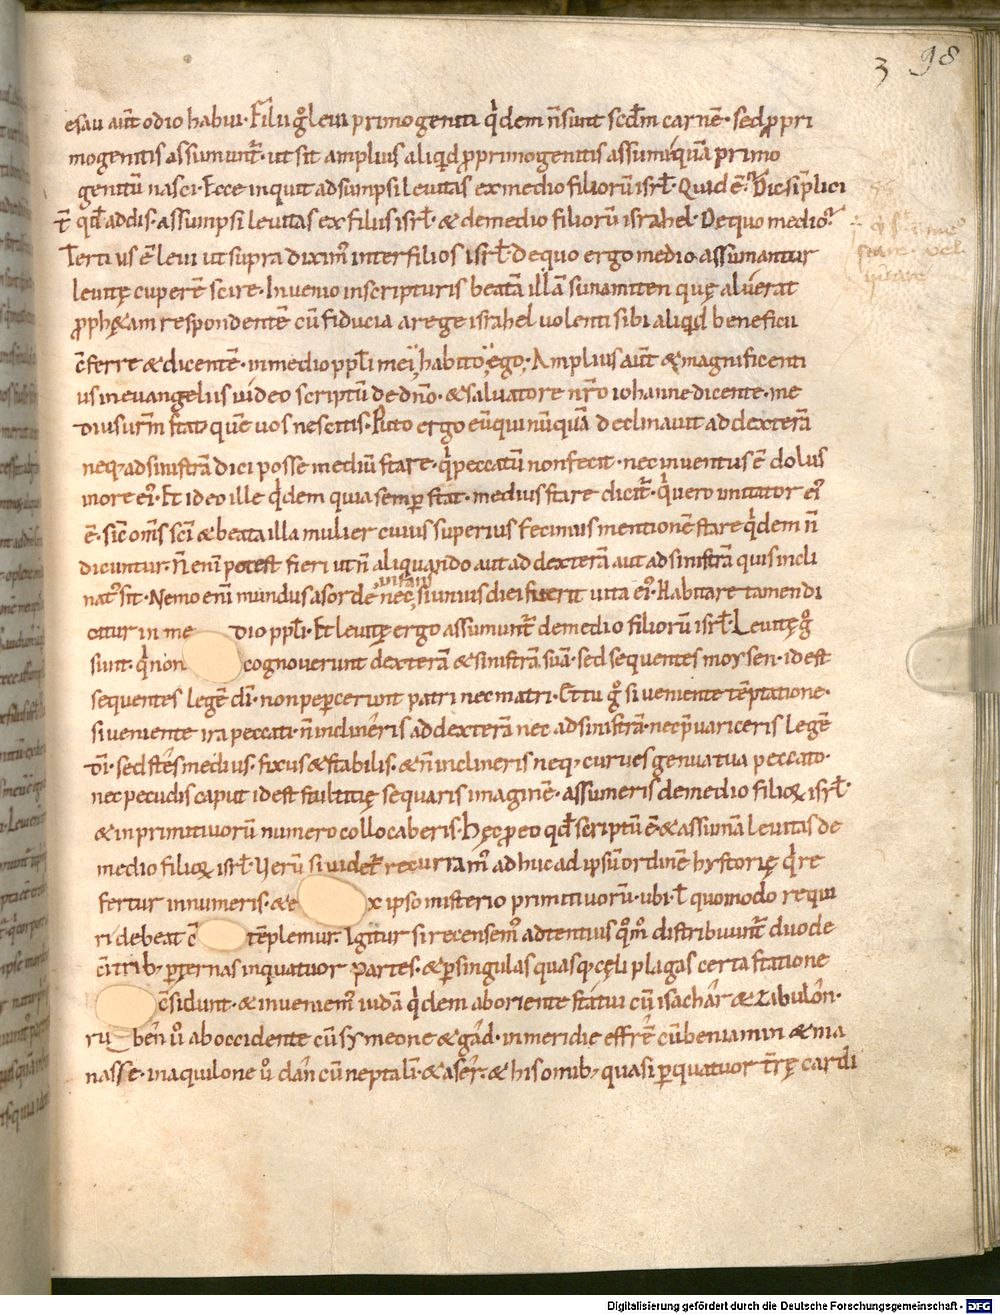 3 98
esau aut̄ odio habui · Filii g̊ leui primogeniti q̇dem n̄ sunt scd̄m carnē · sed ꝓ pri
mogenitis assumunt̄ · ut sit amplius aliqid ꝓ primogenitis assumi quā primo
genitū nasci · Ecce inquit adsumpsi leuitas ex medio filiorū isrł · Quid ē · Dic simplici
t̄ qđ addis · assumpsi leuitas ex filiis isrł · & de medio filiorū israhel · De quo medio
Tertius ē leui ut supra diximꝰ inter filios isrł de quo ergo medio assumantur
leuitę cuperē scire · Inuenio in scripturis beatā illā sunamiten quę aluerat
ꝓph&am respondentē cū fiducia a rege israhel uolenti sibi aliqid beneficii
c̄ferre & dicentē · in medio ppłi mei habito ego · Amplius aut̄ & magnificenti
us in euangeliis uideo scriptū de dn̄o · & saluatore nr̄o iohanne dicente · me
dius ur̄m stat quē uos nescitis · Puto ergo eū qui nūquā declinauit ad dexterā
neq; ad sinistrā dici posse mediū stare · q̇ peccatū non fecit · nec inuentus ē dolus
in ore eiꝰ · Et ideo ille q̇dem quia semꝑ stat · medius stare dicit̄ · q̇ uero imitator eiꝰ
ē · sic om̄s sc̄i & beata illa mulier cuius superius fecimus mentionē stare q̇dem n̄
dicuntur · N̄ enī potest fieri ut n̄ aliquando aut ad dexterā aut ad sinistrā quis incli
natꝰ sit · Nemo enī mundus a sorde nec si unius diei fuerit uita eiꝰ · Habitare tamen di
citur in me dio ppłi · Et leuitę ergo assumunt̄ de medio filiorū isrł · Leuitę g̊
sunt · q̇ non cognouerunt dexterā & sinistrā suā · sed sequentes moysen · id est
sequentes legē dī · non peꝑcerunt patri nec matri · Et tu g̊ si ueniente tēptatione ·
si ueniente ira peccati · n̄ inclineris ad dexterā nec ad sinistrā · nec p̄uariceris legē
dī · sed stes medius · fixus & stabilis · & n̄ inclineris neq; curues genua tua peccato ·
nec pecudis caput id est stultitię sequaris imaginē · assumeris de medio filioꝝ isrł ·
& in primitiuorū numero collocaberis · Hęc ꝓ eo qđ scriptū ē · & assumā leuitas de
medio filioꝝ isrł · Uerū si uidet̄ recurramꝰ adhuc ad ipsū ordinē hystorię q̇ re
fertur in numeris · & e x ipso misterio primitiuorū · ubi · ł quomodo requi
ri debeat c̄ tēplemur · Igitur si recensemꝰ adtentius q̊m̊ distribuunt̄ duode
cī trib; ꝑ ternas in quatuor partes · & ꝑ singulas quasq; cęli plagas certa statione
c̄sidunt · & inueniemꝰ iudā q̇dem ab oriente statui cū isachar & zabulon ·
ru ben u̇ ab occidente cū symeone & gad · in meridie effrē cū beniamin & ma
nasse · in aquilone u̇ dan cū neptalī · & aser · & his om̄ib; quasi ꝑ quatuor t̄rę cardi
Digitalisierung gefördert durch die Deutsche Forschungsgemeinschaft - DFG